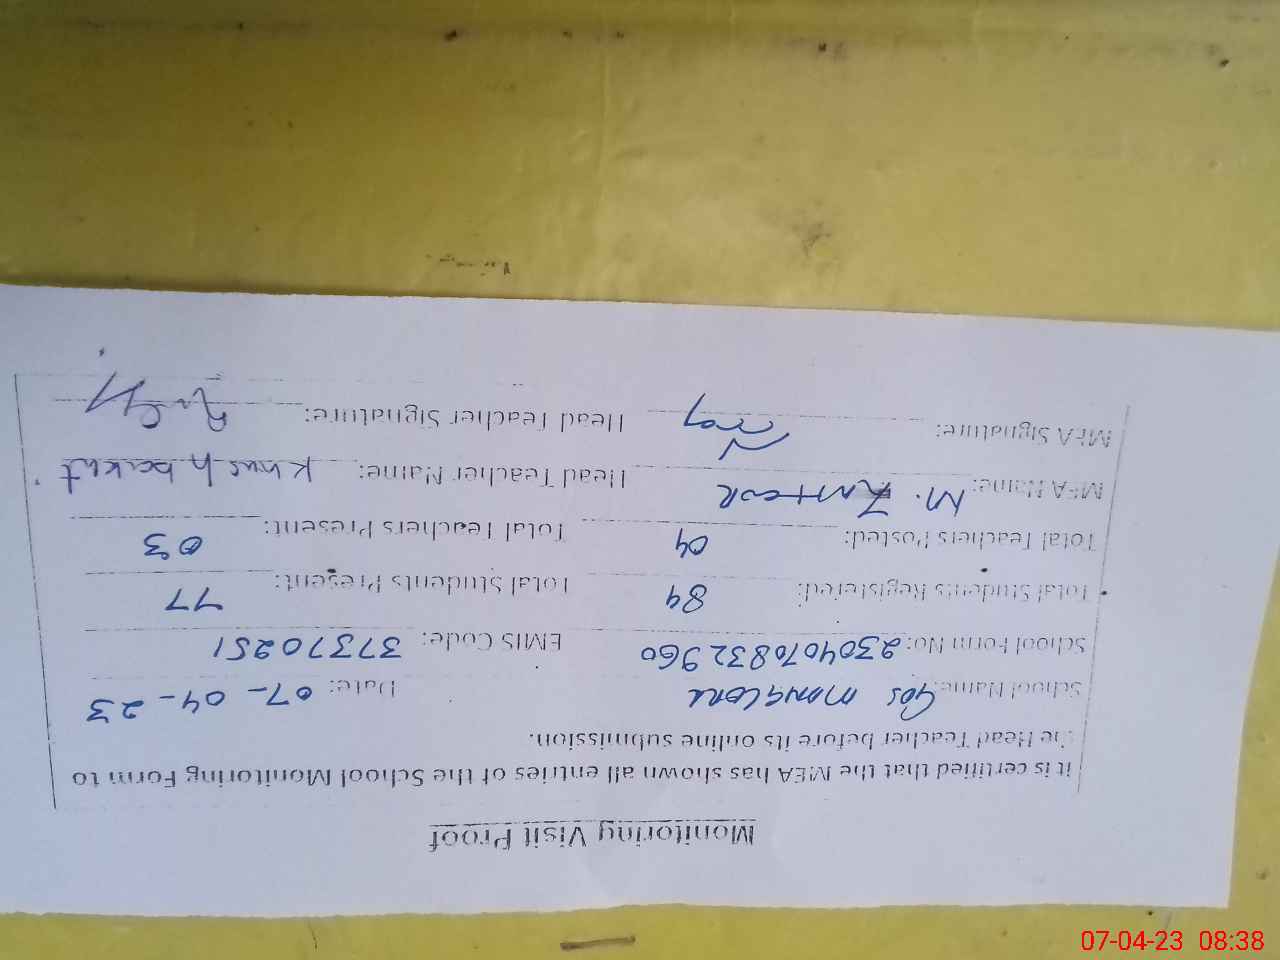 Monitoring Visit Proof
it is certified that the MEA has shown all entries of the School Monitoring Form to
the Head Teacher before its online submission.
School Name: GPS Date: 07-04-23
School Form No: 2304070832960 EMIS Code: 37370251
Total Students Registered: 84 Total Students Present: 77
Total Teachers Posted: 04 Total Teachers Present: 03
MEA Name: M. Head Teacher Name: Khush bakht
MEA Signature: Head Teacher Signature:
07-04-23 08:38